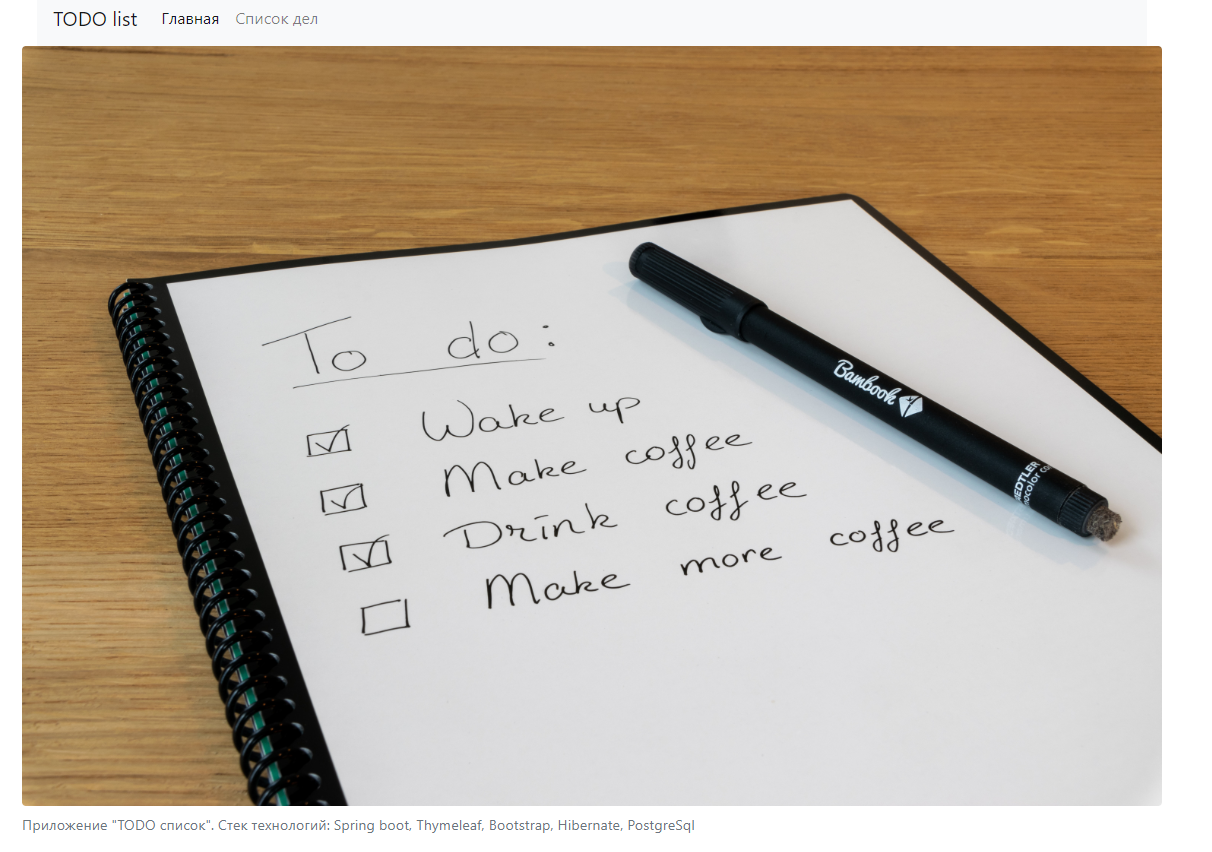 TODO list Главная Список дел
To do:
Wake up
Make coffee
Drink coffee
Make more coffee
Bambook
Приложение "TODO список". Стек технологий: Spring boot, Thymeleaf, Bootstrap, Hibernate, PostgreSql